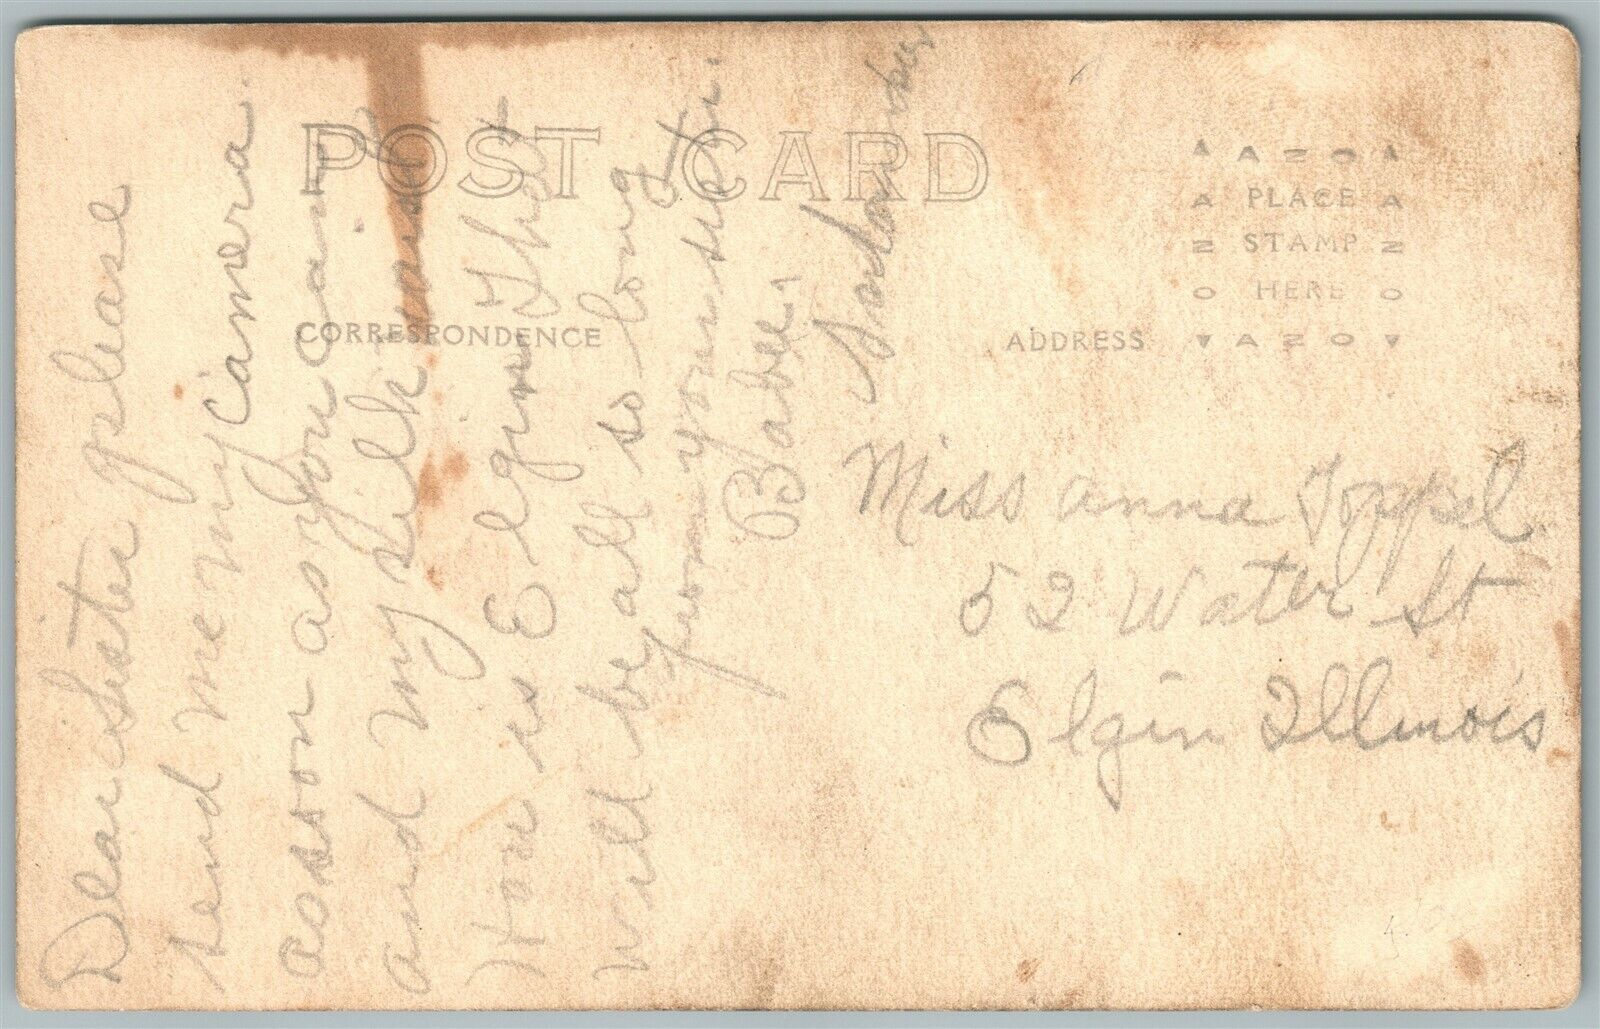 POST CARD
CORRESPONDENCE
ADDRESS
AZO
PLACE
STAMP
HERE
AZO
Dear Sister please
send me my camera.
as soon as you can
and my silk waist
How is Elgin That
will be all so long
from your sister.
Babe.
Miss Anna Toppel
52 Water St
Elgin Illinois